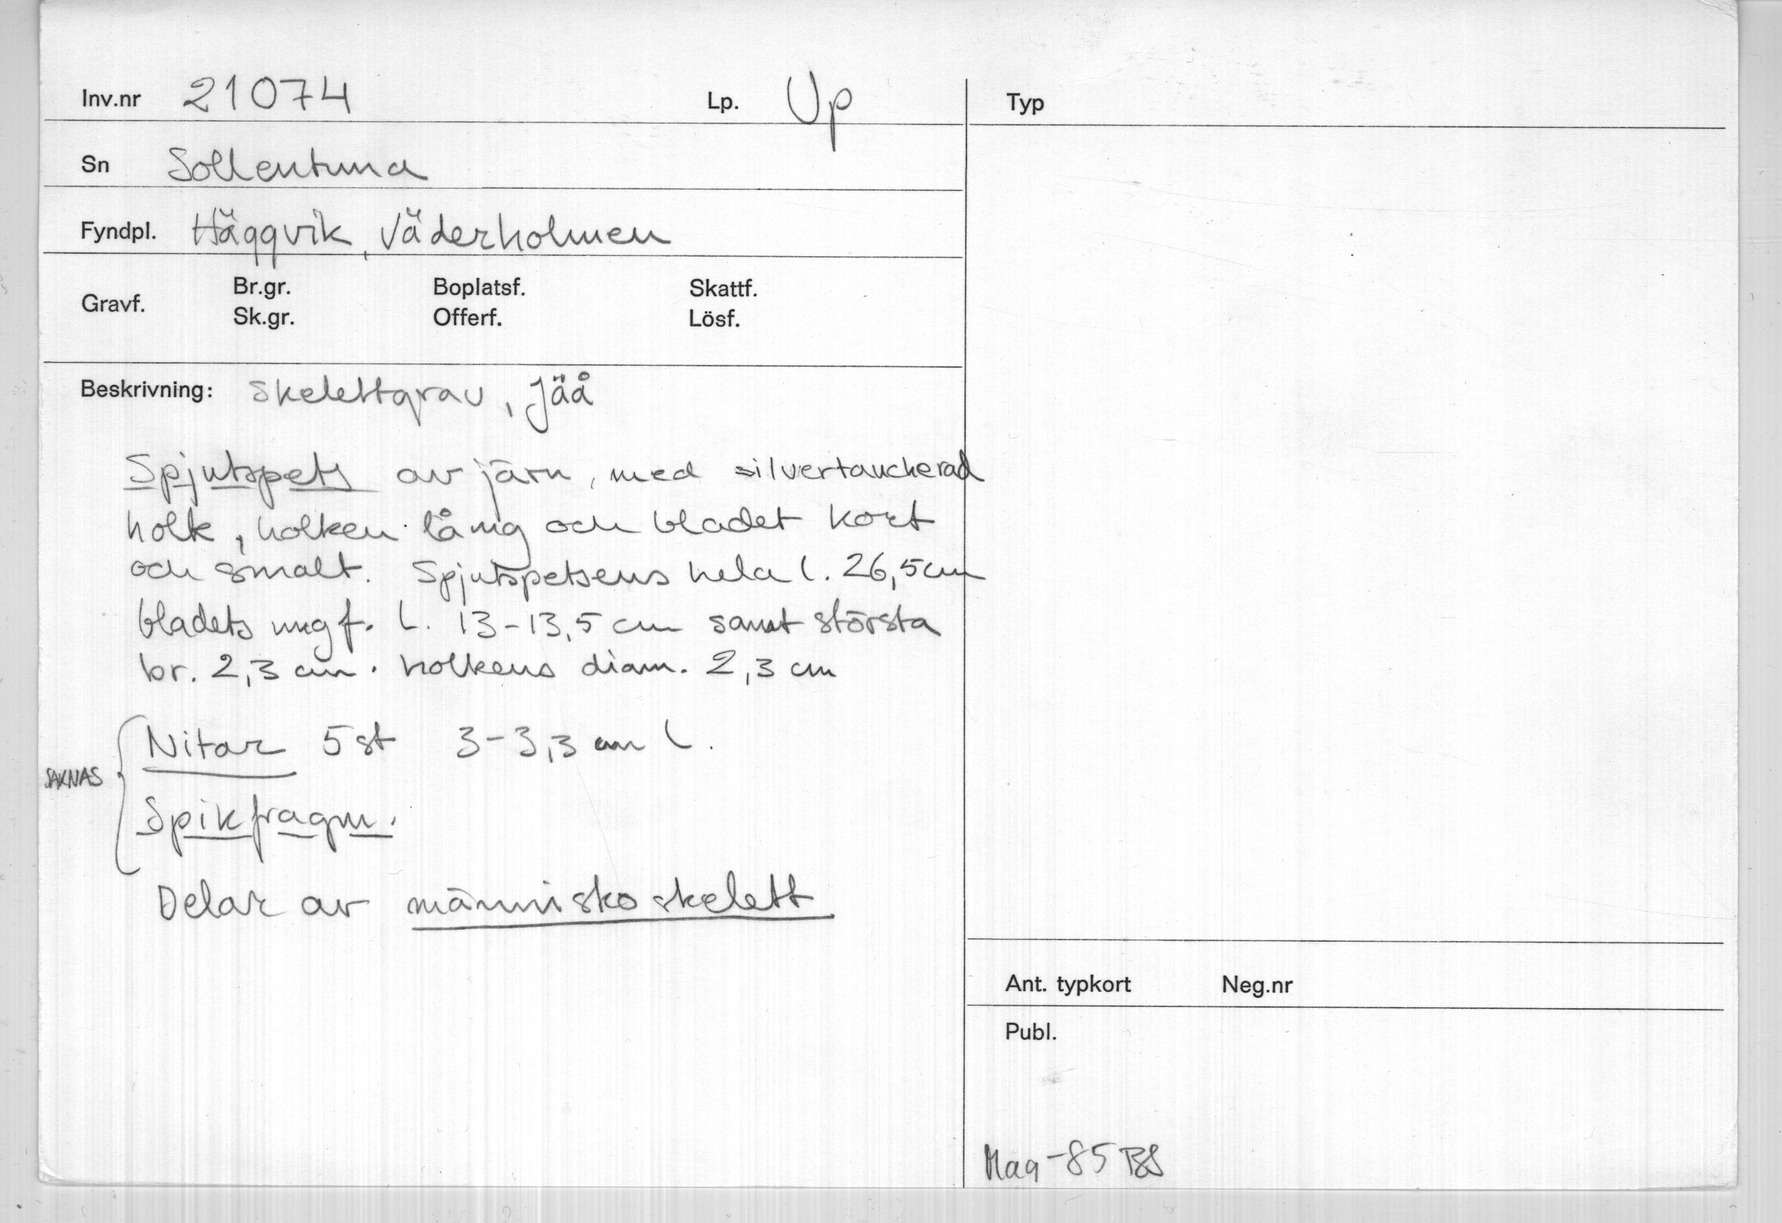 Inv.nr 21074 Lp. Up
Sn Sollentuna
Fyndpl. Häggvik, Väderholmen
Gravf. Br.gr. Boplatsf. Skattf.
Sk.gr. Offerf. Lösf.
Beskrivning: Skelettgrav, Jäå
Spjutspets av järn, med silvertaucherad
holk, holken lång och bladet kort
och smalt. Spjutspetsens hela l. 26,5 cm
bladets ungf. L. 13-13,5 cm samt största
br. 2,3 cm. holkens diam. 2,3 cm
Nitar 5 st 3-3,3 cm L.
SAKNAS
Spikfragm.
Delar av människoskelett
Typ
Ant. typkort Neg.nr
Publ.
Mag -85 BS